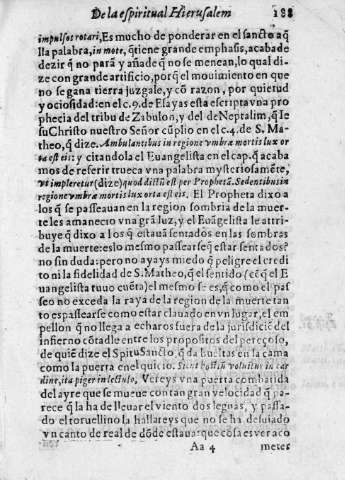 De la espiritual Hierusalem 188
impulsos rotari, Es mucho de ponderar en el sancto aq̃
lla palabra, in mote, q̃tiene grande emphasis, acaba de
dezir q̃ no pará y añade q̃ no se menean, lo qual di
ze con grande artificio, porq̃ el mouimiento en que
no se gana tierra juzgale, y cõ razon, por quietud
y ociosidad: en el c. 9. de Esayas esta escripta vna pro
phecia del tribu de Zabulon, y del de Neptalim, q̃ Ie
su Christo nuestro Señor cũplio en el c. 4. de S. Ma
theo, q̃ dize. Ambulantibus in regione vmbræ mortis lux or
ta est eis: y citandola el Euangelista en el cap. q̃ acaba
mos de referir trueca vna palabra mysteriosamẽte,
vt impleretur (dize) quod dictũ est per Prophetã. Sedentibus in
regione vmbræ mortis lux orta est eis. El Propheta dixo a
los q̃ se passeauan en la region sombria de la muer
te les amanecio vna grã luz, y el Euãgelista le attri
buye q̃ dixo a los q̃ estauã sentados en las sombras
de la muerte: es lo mesmo passearse q̃ estar sentados?
no sin duda: pero no ayays miedo q̃ peligre el credi
to ni la fidelidad de S. Matheo, q̃ el sentido (cõ q̃ el E
uangelista tuuo cuẽta) el mesmo se es, q̃ como el pas
seo no exceda la raya de la region de la muerte tan
to es passearse como estar clauado en vn lugar, el em
pellon q̃ no llega a echaros fuera de la jurisdiciõ del
infierno cõtadle entre los propositos del pereçoso,
de quiẽ dize el Spiritu Sancto, q̃ da bueltas en la cama
como la puerta en el quicio. Sicut hostiũ voluitur in car
dine, ita piger in lectulo. Vereys vna puerta combatida
del ayre que se mueue con tan gran velocidad q̃ pa
rece q̃ la ha de lleuar el viento dos leguas, y passa-
do el toruellino la hallareys que no se ha desuiado
vn canto de real de dõde estaua: que cosa es ver a co
Aa 4 metes